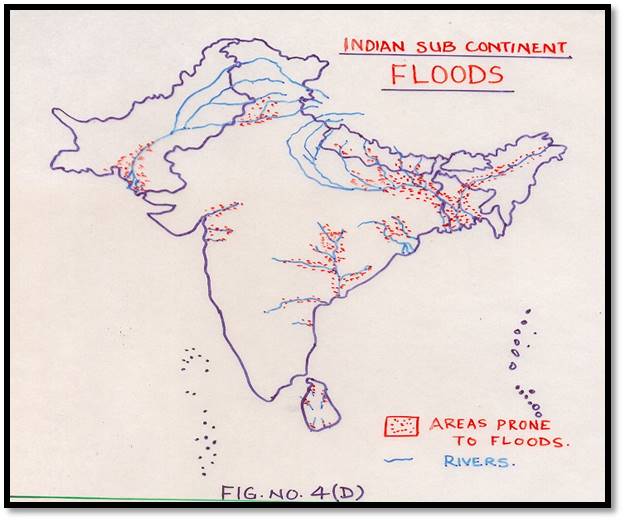 INDIAN SUB CONTINENT
FLOODS
AREAS PRONE
TO FLOODS.
RIVERS.
FIG. NO. 4(D)